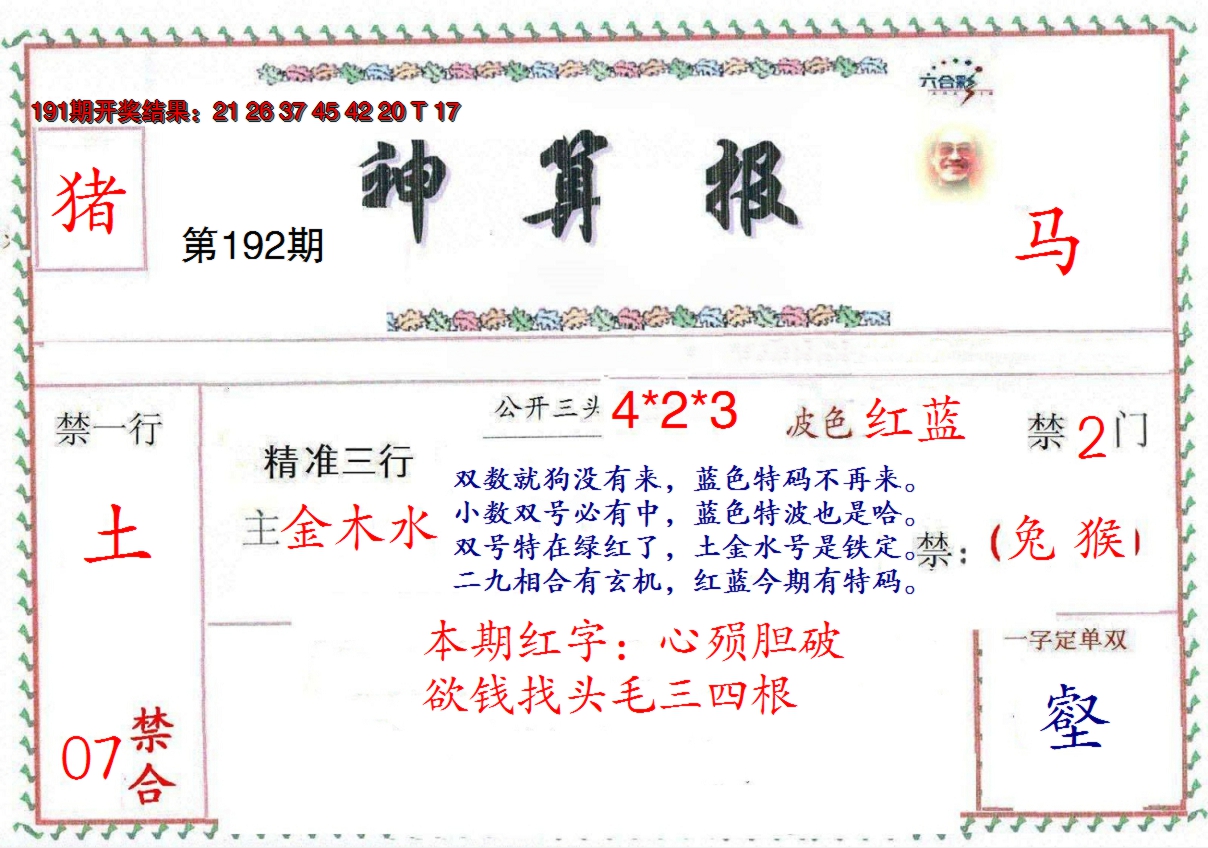 六合彩
191期开奖结果：21 26 37 45 42 20 T 17
神算报
猪
第192期
马
公开三头 4*2*3
波色 红蓝
禁2门
禁一行
土
精准三行
主金木水
双数就狗没有来，蓝色特码不再来。
小数双号必有中，蓝色特波也是哈。
双号特在绿红了，土金水号是铁定。
二九相合有玄机，红蓝今期有特码。
禁：（兔 猴）
本期红字：心殒胆破
欲钱找头毛三四根
一字定单双
壑
07禁合